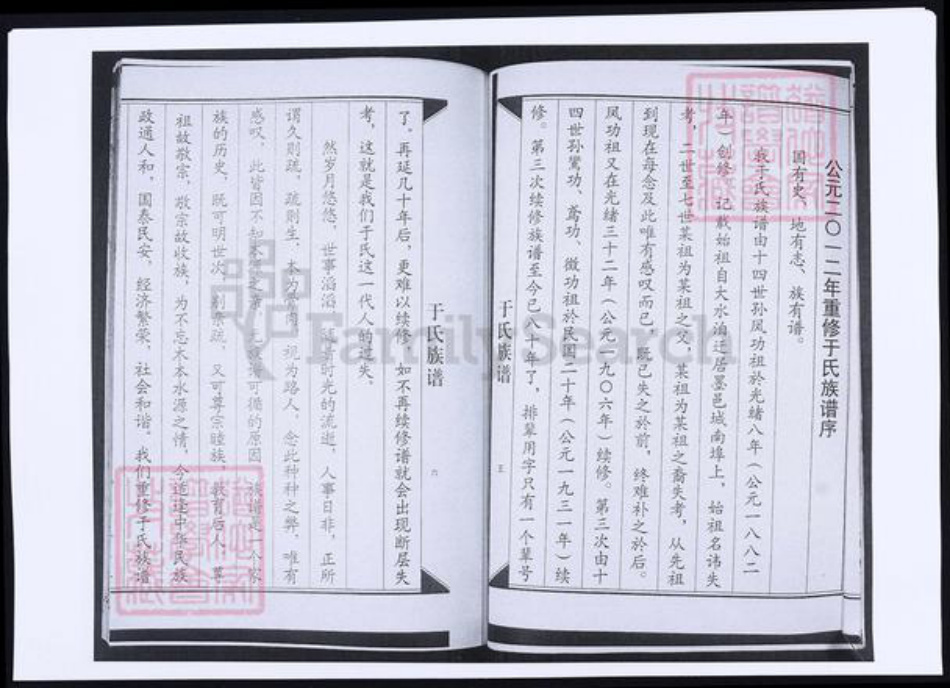 公元二〇一二年重修于氏族谱序
国有史、地有志、族有谱。
我于氏族谱由十四世孙凤功祖於光绪八年（公元一八八二
年）创修，记载始祖自大水泊迁居墨邑城南埠上，始祖名讳失
考，二世至七世某祖为某祖之父，某祖为某祖之裔失考，从先祖
到现在每念及此唯有感叹而已，既已失之於前，终难补之於后。
凤功祖又在光绪三十二年（公元一九〇六年）续修。第三次由十
四世孙鸾功、鸢功、徵功祖於民国二十年（公元一九三一年）续
修。第三次续修族谱至今已八十年了，排辈用字只有一个辈号
于氏族谱
五
于氏族谱
六
了。再延几十年后，更难以续修，如不再续修谱就会出现断层失
考，这就是我们于氏这一代人的过失、
然岁月悠悠，世事滔滔，随着时光的流逝，人事日非，正所
谓久则疏，疏则生，本为骨肉，视为路人。念此种种之弊，唯有
感叹，此皆因不知本源之所，无族谱可循的原因。族谱是一个家
族的历史，既可明世次，别亲疏，又可尊宗睦族，教育后人，尊
祖故敬宗，敬宗故收族，为不忘木本水源之情，今适逢中华民族
政通人和。国泰民安，经济繁荣，社会和谐。我们重修于氏族谱
FamilySearch